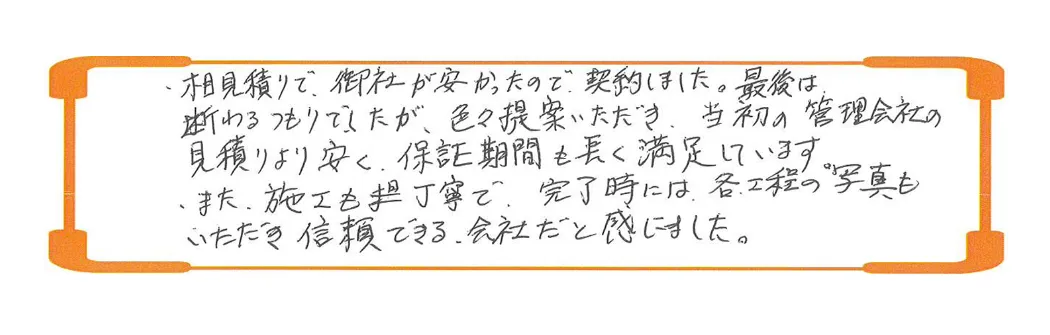 ・相見積りで、御社が安かったので、契約しました。最後は、
断わるつもりでしたが、色々提案いただき、当初の管理会社の
見積りより安く、保証期間も長く満足しています。
・また、施工も丁寧で、完了時には、各工程の写真も
いただき信頼できる、会社だと感じました。